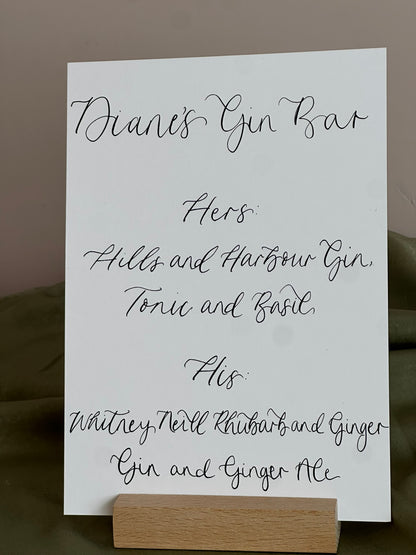 Diane's Gin Bar
Hers:
Hills and Harbour Gin,
Tonic and Basil,
His:
Whitney Neill Rhubarb and Ginger
Gin and Ginger Ale